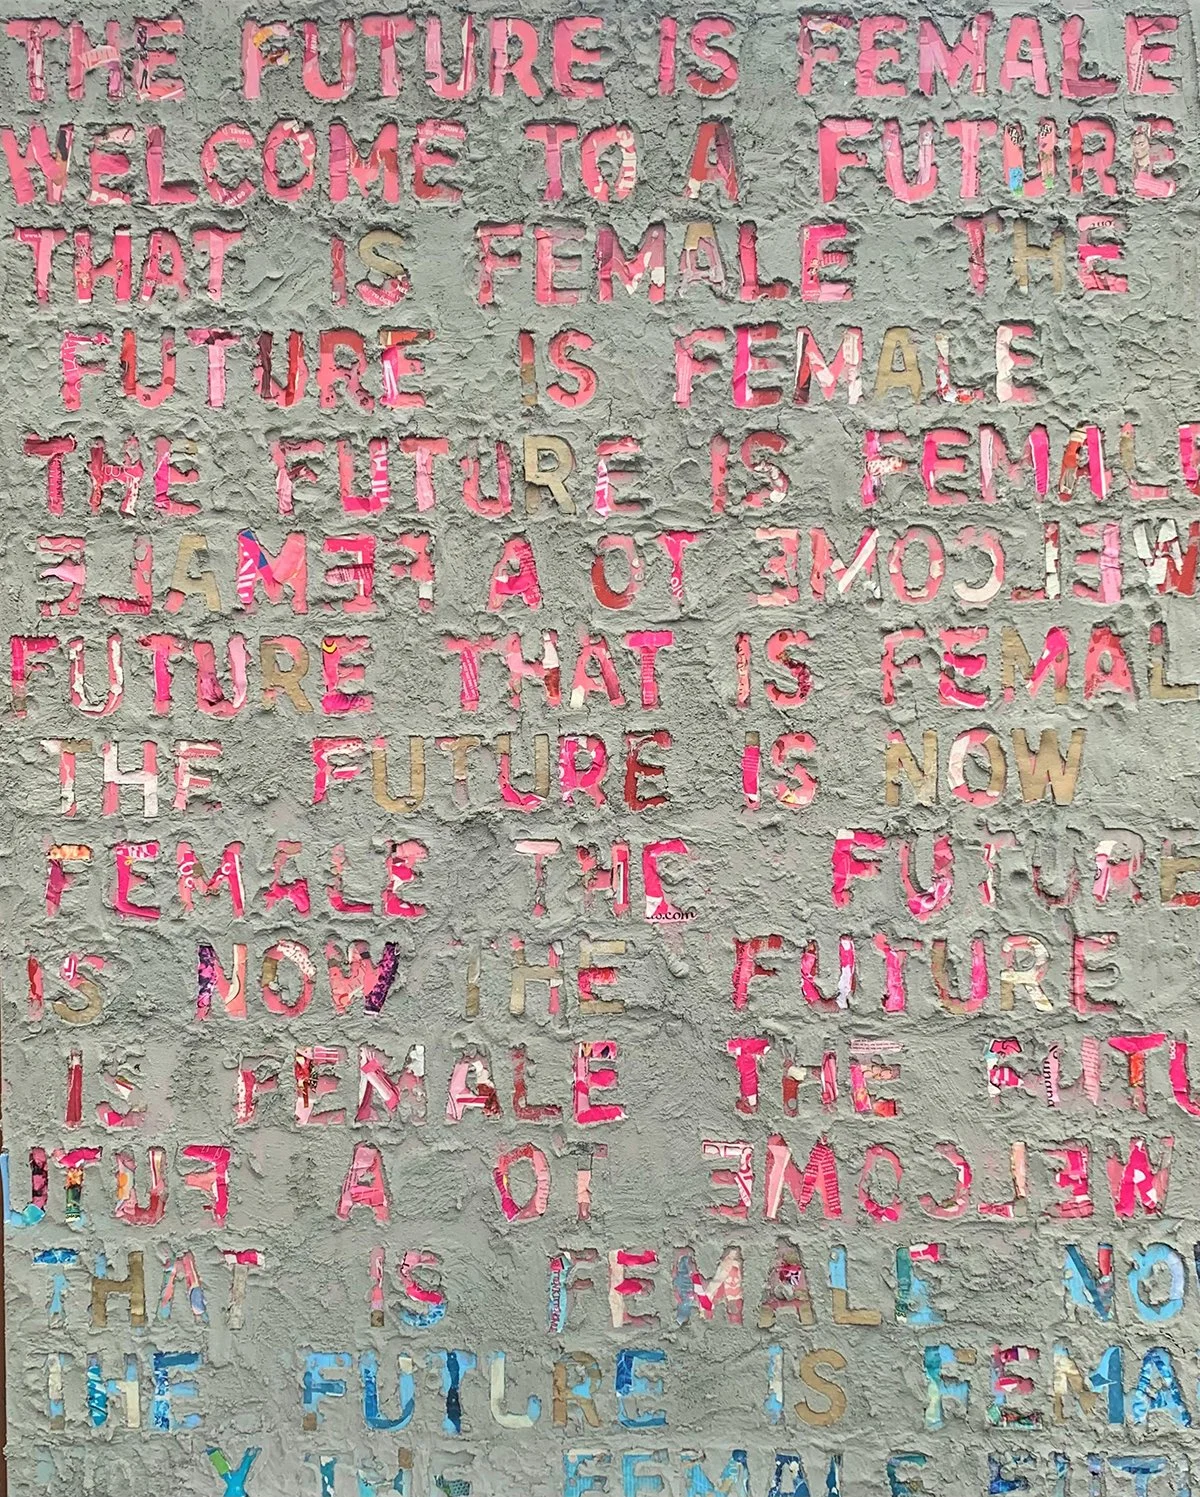 THE FUTURE IS FEMALE
WELCOME TO A FUTURE
THAT IS FEMALE THE
FUTURE IS FEMALE
THE FUTURE IS FEMALE
WELCOME TO A FEMALE
FUTURE THAT IS FEMAL
THE FUTURE IS NOW
FEMALE THE FUTURE
IS NOW THE FUTURE
IS FEMALE THE FUTU
WELCOME TO A FUTU
THAT IS FEMALE NOW
THE FUTURE IS FEMA
THE FEMALE FUT